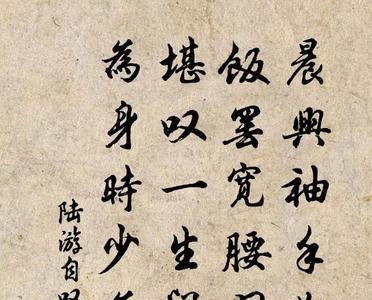 晨興袖手
飯罷寬腰
堪叹一生
為身時少
陸游自